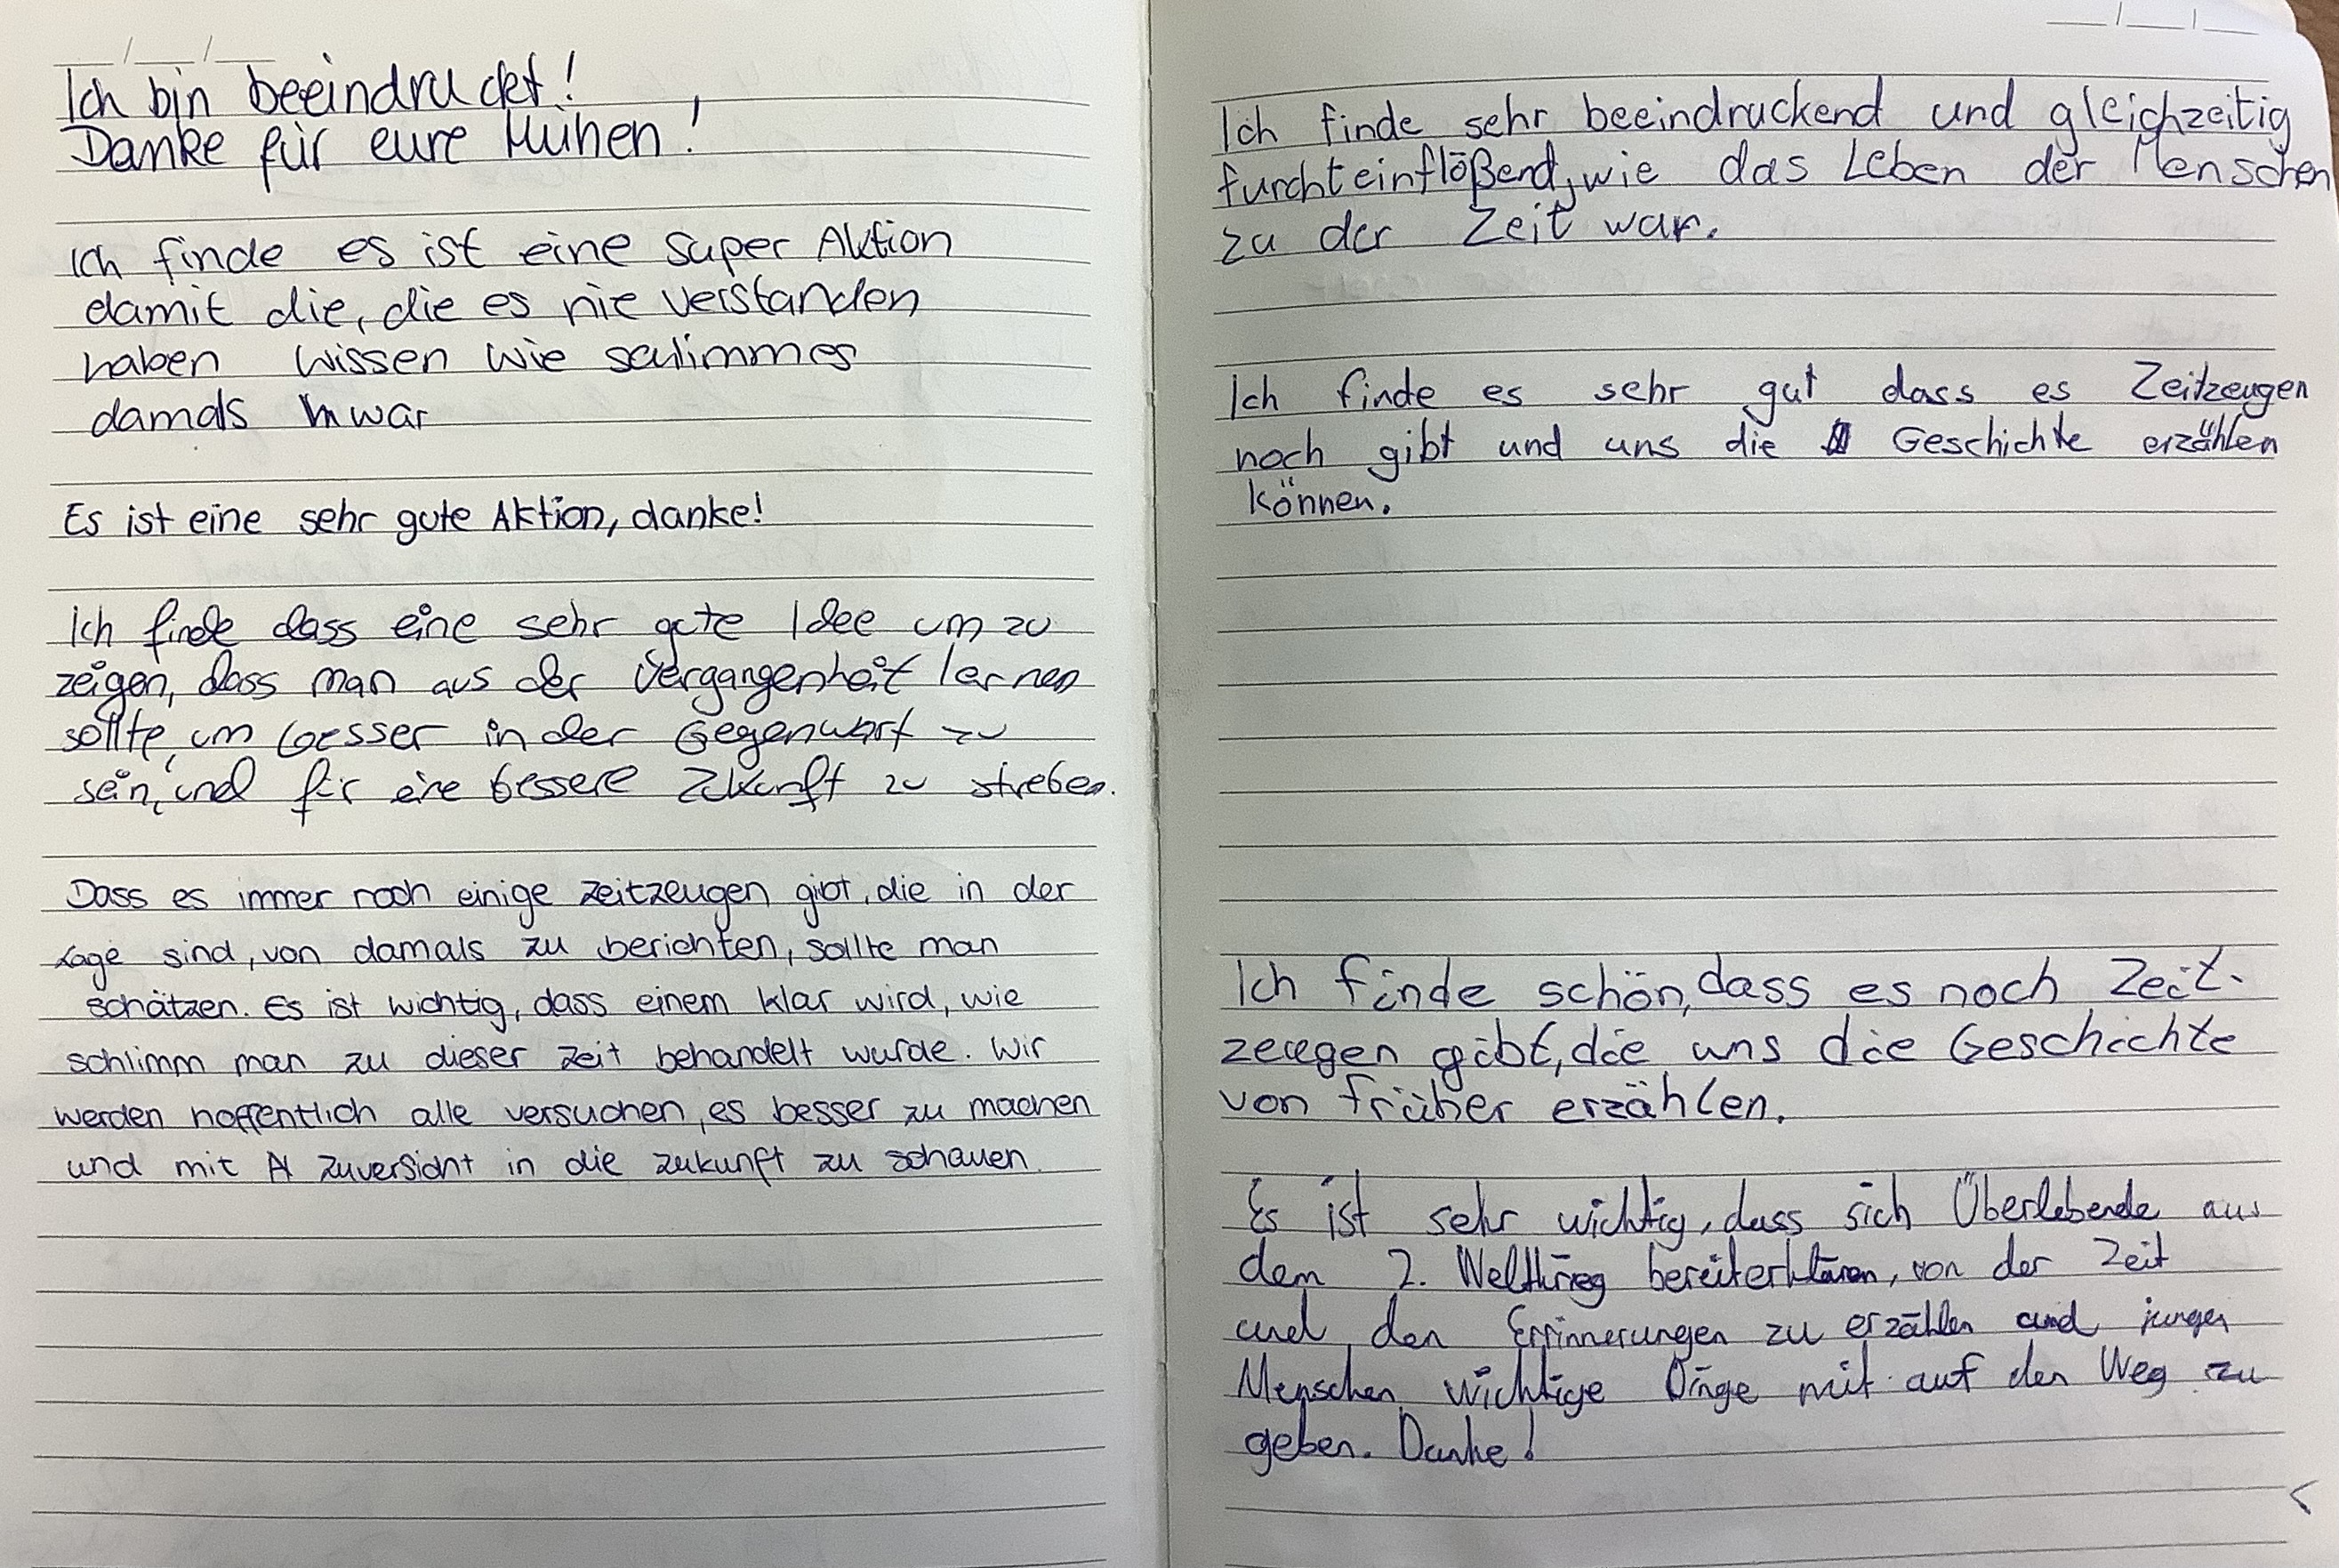 Ich bin beeindruckt!
Danke für eure Mühen!
Ich finde es ist eine super Aktion
damit die, die es nie verstanden
haben wissen wie schlimmes
damals war
Es ist eine sehr gute Aktion, danke!
Ich finde dass eine sehr gute Idee um zu
zeigen, dass man aus der Vergangenheit lernen
sollte, um besser in der Gegenwart zu
sein, und für eine bessere Zukunft zu streben.
Dass es immer noch einige Zeitzeugen gibt, die in der
Lage sind, von damals zu berichten, sollte man
schätzen. Es ist wichtig, dass einem klar wird, wie
schlimm man zu dieser Zeit behandelt wurde. Wir
werden hoffentlich alle versuchen, es besser zu machen
und mit Zuversicht in die Zukunft zu schauen.
Ich finde sehr beeindruckend und gleichzeitig
furchteinflößend, wie das Leben der Menschen
zu der Zeit war.
Ich finde es sehr gut dass es Zeitzeugen
noch gibt und uns die Geschichte erzählen
können.
Ich finde schön, dass es noch Zeit-
zeugen gibt, die uns die Geschichte
von früher erzählen.
Es ist sehr wichtig, dass sich Überlebende aus
dem 2. Weltkrieg bereiterklären, von der Zeit
und den Errinnerungen zu erzählen und jungen
Menschen wichtige Dinge mit auf den Weg zu
geben. Danke!